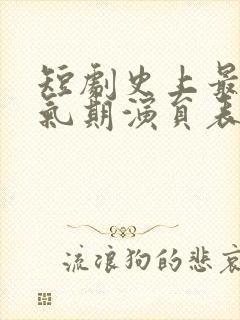 短劇史上最
氣期演員表
流浪狗的悲哀